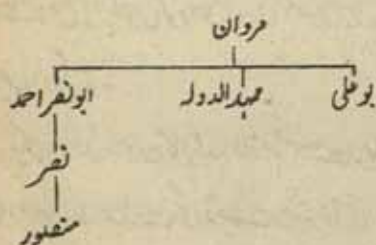 مروان
بوعلی ممهدالدوله ابونصراحمد
نصر
منصور